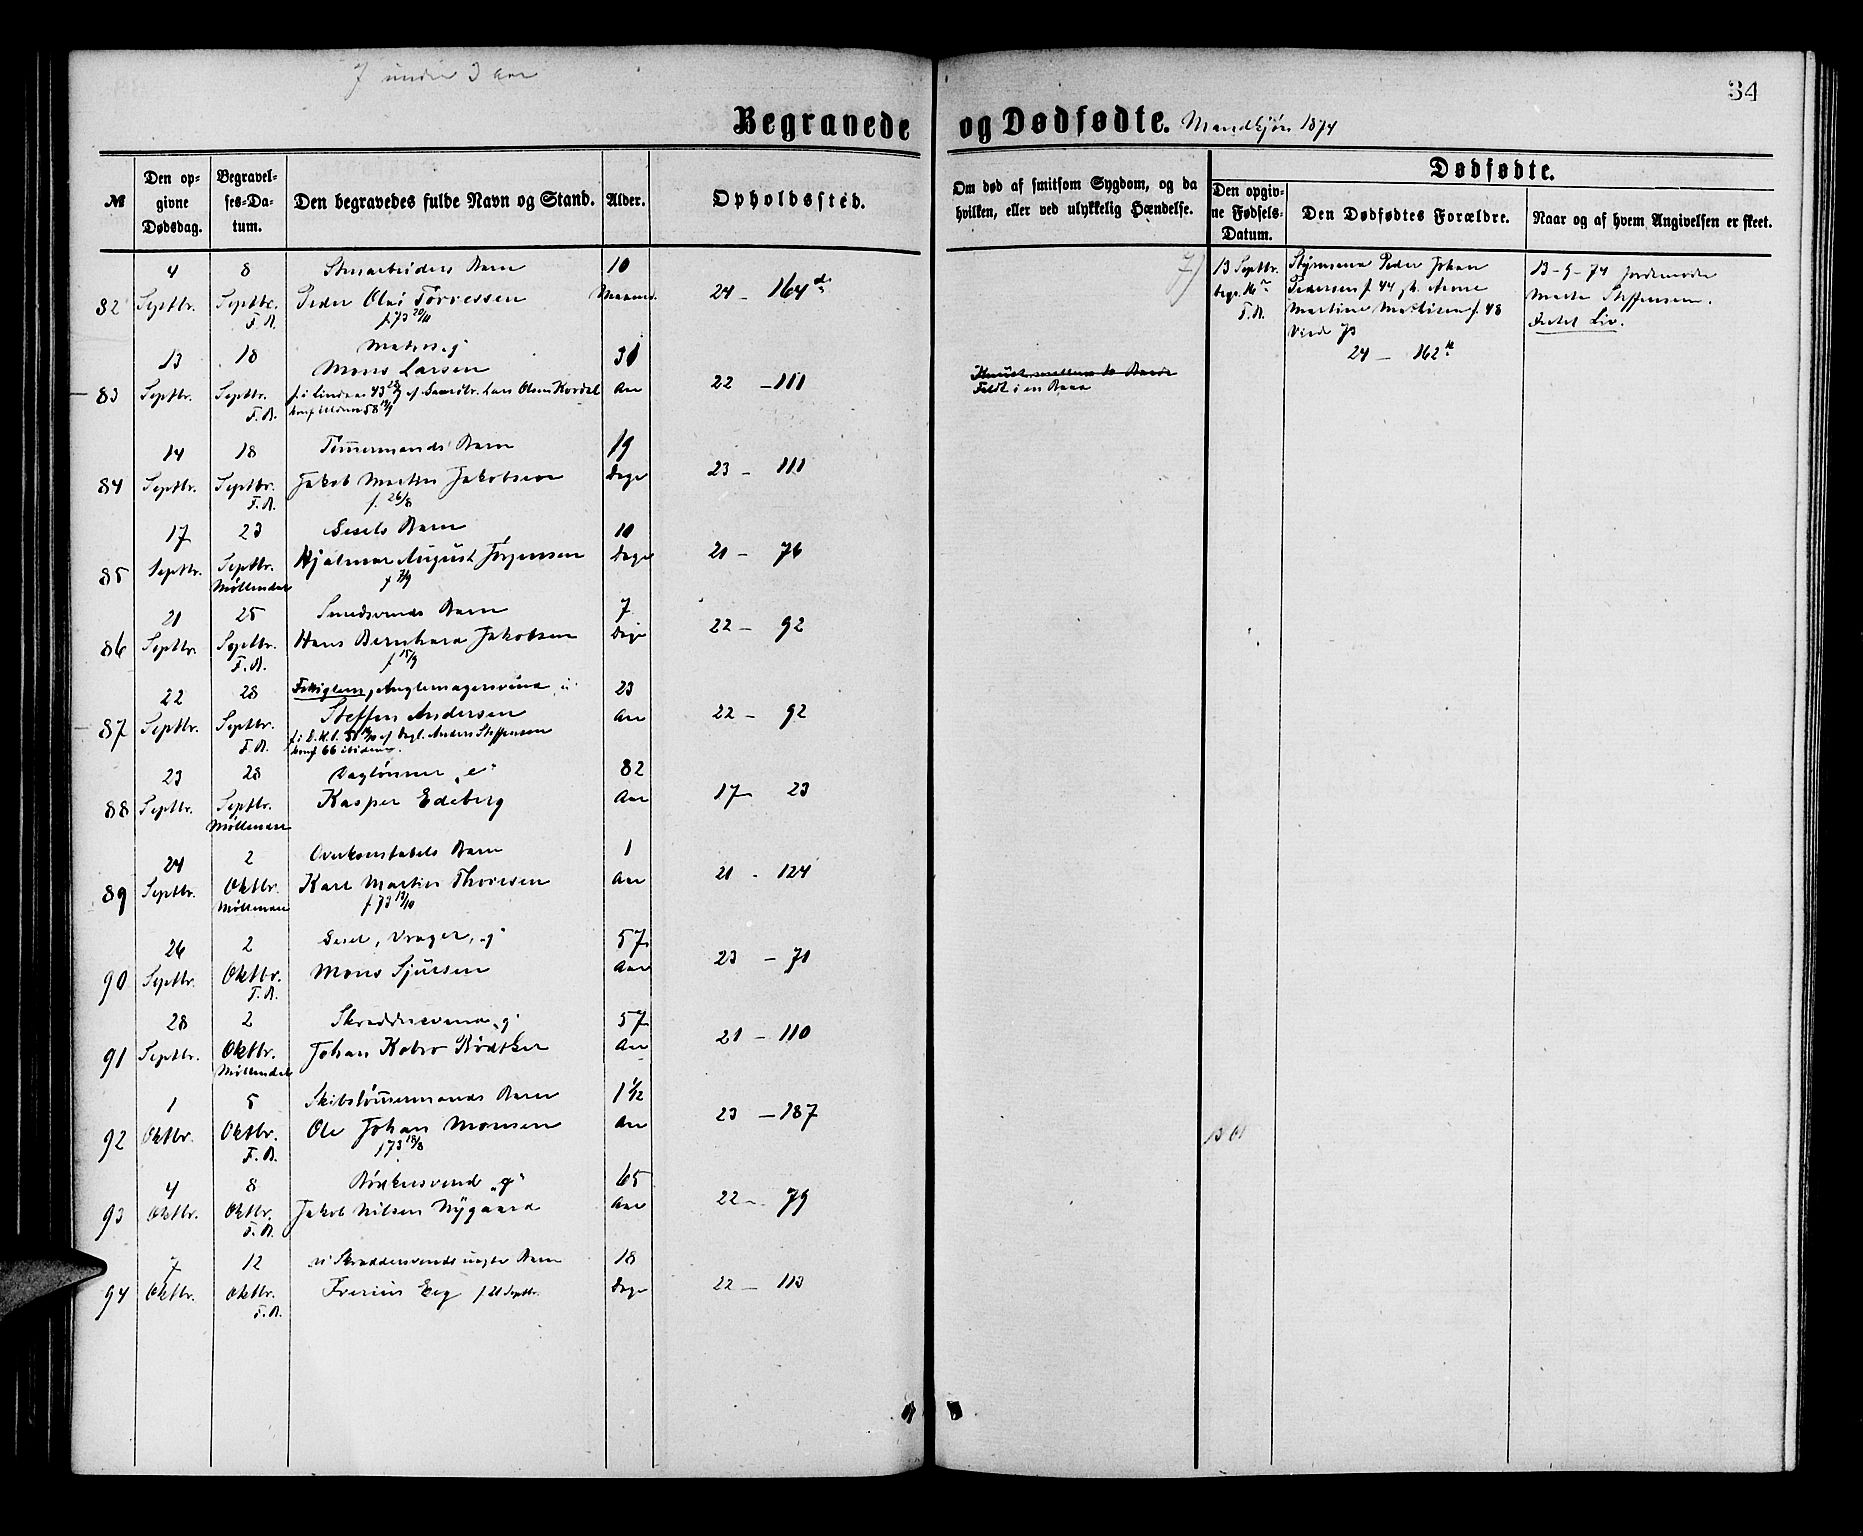 7 under 3 Aar
34
Begravede og Dødfødte. Mandkjøn 1874
№
Den opgivne Dødsdag.
Begravelses-Datum.
Den begravedes fulde Navn og Stand.
Alder.
Opholdssted.
Om død af smitsom Sygdom, og da hvilken, eller ved ulykkelig Hændelse.
Dødfødte.
Den opgivne Fødsels-Datum.
Den Dødfødtes Forældre.
Naar og af hvem Angivelsen er skeet.
4 8 Barn 10
82 Septbr. Septbr. Peder Olai Maaned. 24 – 164
F.A. f. 73 20/11
7) 13 Septbr. Styrmand Peder Johan
begr. 16
F.A.
Pedersen f. 44 Anne
Martine f. 48
24 – 162
13-9-74 Jordemoder
Marte Steffensen.
Intet Liv.
13 18 Matros „g" 31
83 Septbr. Septbr. Mons Larsen Aar 22 – 111
F.A.
Faldt i en Baad
14 18 Tømmermands Barn 19
84 Septbr. Septbr. Jakob Jakobsen Dage 23 – 111
F.A. f. 26/8
17 23 Barn 10
85 Septbr. Septbr. Hjalmar August Jørgensen Dage 21 – 76
Møllendal f 7/9
21 25 Smedsvends Barn 7
86 Septbr. Septbr. Hans Bernhard Jakobsen Dage 22 – 92
F.A. f 15/9
22 28 Fattiglem, „u" 23
87 Septbr. Septbr. Steffen Andersen Aar 22 – 92
F.A. Anders Steffensen
konf 66 ibidem.
23 28 Daglønner „e" 82
88 Septbr. Septbr. Kasper Edeberg Aar 17 – 23
Møllendal
24 2 Overkonstabels Barn 1
89 Septbr. Oktbr. Karl Martin Thoresen Aar 21 - 124
Møllendal f. 73 13/10
26 2 Vrager, „g" 57
90 Septbr. Oktbr. Mons Sjursen Aar 23 – 71
F.A.
28 2 Skræddersvend „g" 57
91 Septbr. Oktbr. Johan Kobro Bødtker Aar 21 – 110
Møllendal
1 5 Skibstømmermands Barn 1 1/12
92 Oktbr. Oktbr. Ole Johan Monsen Aar 23 – 187
F.A. f 73 18/8
4 8 Bødkersvend „g" 65
93 Oktbr. Oktbr. Jakob Nilsen Nygaard Aar 22 – 79
F.A.
7 12 Skræddersvends uægte Barn 18
94 Oktbr. Oktbr. Eeg f 21 Septbr. Dage 22 – 113
F.A.